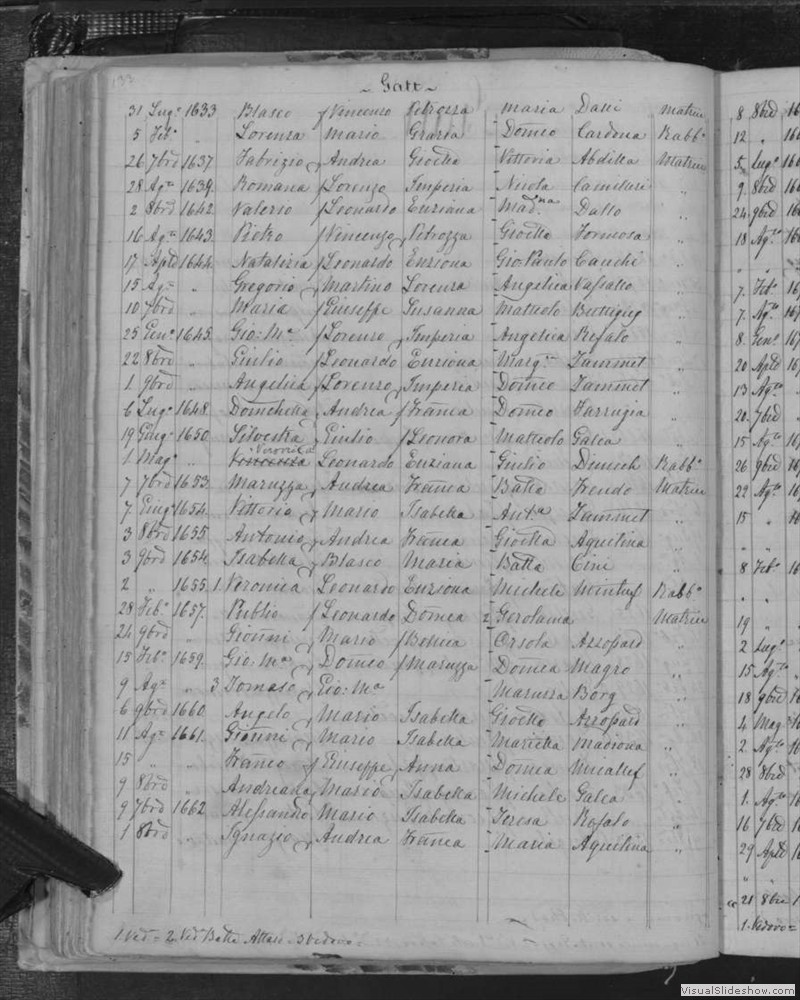 133
~ Gatt ~
31 Lug.o 1633 Blasco f Vincenzo Petrozza Maria Dalli Matrice
5 Feb.o " Lorenza Mario Grazia Domco Cardona Rabb.o
26 7bre 1637. Fabrizio f Andrea Gioetta Vittoria Abdilla Matrice
28 Ag.to 1639. Romana f Lorenzo Imperia Nicola Camilleri "
2 8bre 1642. Valerio f Leonardo Enziona Mad.na Dallo "
16 Ag.to 1643. Pietro f Vincenzo Petrozza Gioetta Formosa "
17 Aple 1644. Natalizia f Leonardo Enziona Gio: Paulo Cauchi "
15 Ag.to " Gregorio f Martino Lorenza Angelica Vassallo "
10 7bre " Maria f Giuseppe Susanna Matteolo Buttigieg "
25 Gen.o 1645. Gio: M.a f Lorenzo Imperia Angelica Refalo "
22 8bre " Giulio f Leonardo Enziona Marg.a Zammit "
1 9bre " Angelica f Lorenzo Imperia Domco Zammit "
6 Lug.o 1648. Domchella Andrea f Franca Domco Farrugia "
19 Giug.o 1650. Silvestra f Giulio f Leonora Matteolo Galea "
Veronica
1 Mag.o " Leonardo Enziana Giulio Dimech Rabb.o
7 7bre 1653. Maruzza f Andrea Franca Batta Frendo Matrice
7 Giug.o 1654. Vittoria f Mario Isabella Ant.a Zammit "
3 8bre 1655 Antonio f Andrea Franca Gioetta Aquilina "
3 9bre 1654. Isabella f Blasco Maria Batta Cini "
2 " 1655. 1 Veronica Leonardo Enziona Michele Mintuf Rabb.o
28 Feb.o 1657. Publio f Leonardo Domca 2 Gerolama Matrice
24 9bre " Gioanni f Mario f Orsola Azzopard "
15 Feb.o 1659. Gio: M.a f Domco f Maruzza Domca Magro "
9 Ag.to " 3 Tomaso f Gio: M.a Maruzza Borg "
6 9bre 1660. Angelo f Mario Isabella Gioetta Azzopard "
11 Ag.to 1661. Gioanni f Mario Isabella Marietta Madiona "
15 " " Franco f Giuseppe Anna Domca Micallef "
9 8bre " Andreana f Mario Isabella Michele Galea "
9 7bre 1662 Alessandro Mario Isabella Teresa Refalo "
1 8bre " Ignazio f Andrea Franca Maria Aquilina "
1. Ved.a = 2. Ved. Batta = 3 Vedovo =
8 8bre 16
12 " 16
5 Lug.o 16
9. 8bre 16
24 9bre 16
18 Ag.to 16
" "
7. Feb.o 16
7. Ag.to 167
8. Gen.o 167
20 Aple 167
13 Ag.to "
20. 7bre "
15 Ag.to 16
26 9bre 16
22 Ag.to 16
15 "
" "
8 Feb.o 16
" "
19 "
2 Lug.o
15 Ag.to
18 9bre
4 Mag.o
2 Ag.to
28 8bre
1. Ag.to 16
16 7bre 16
29 Aple 16
" "
21 8bre 1
1. Vedovo =
VisualSlideshow.com